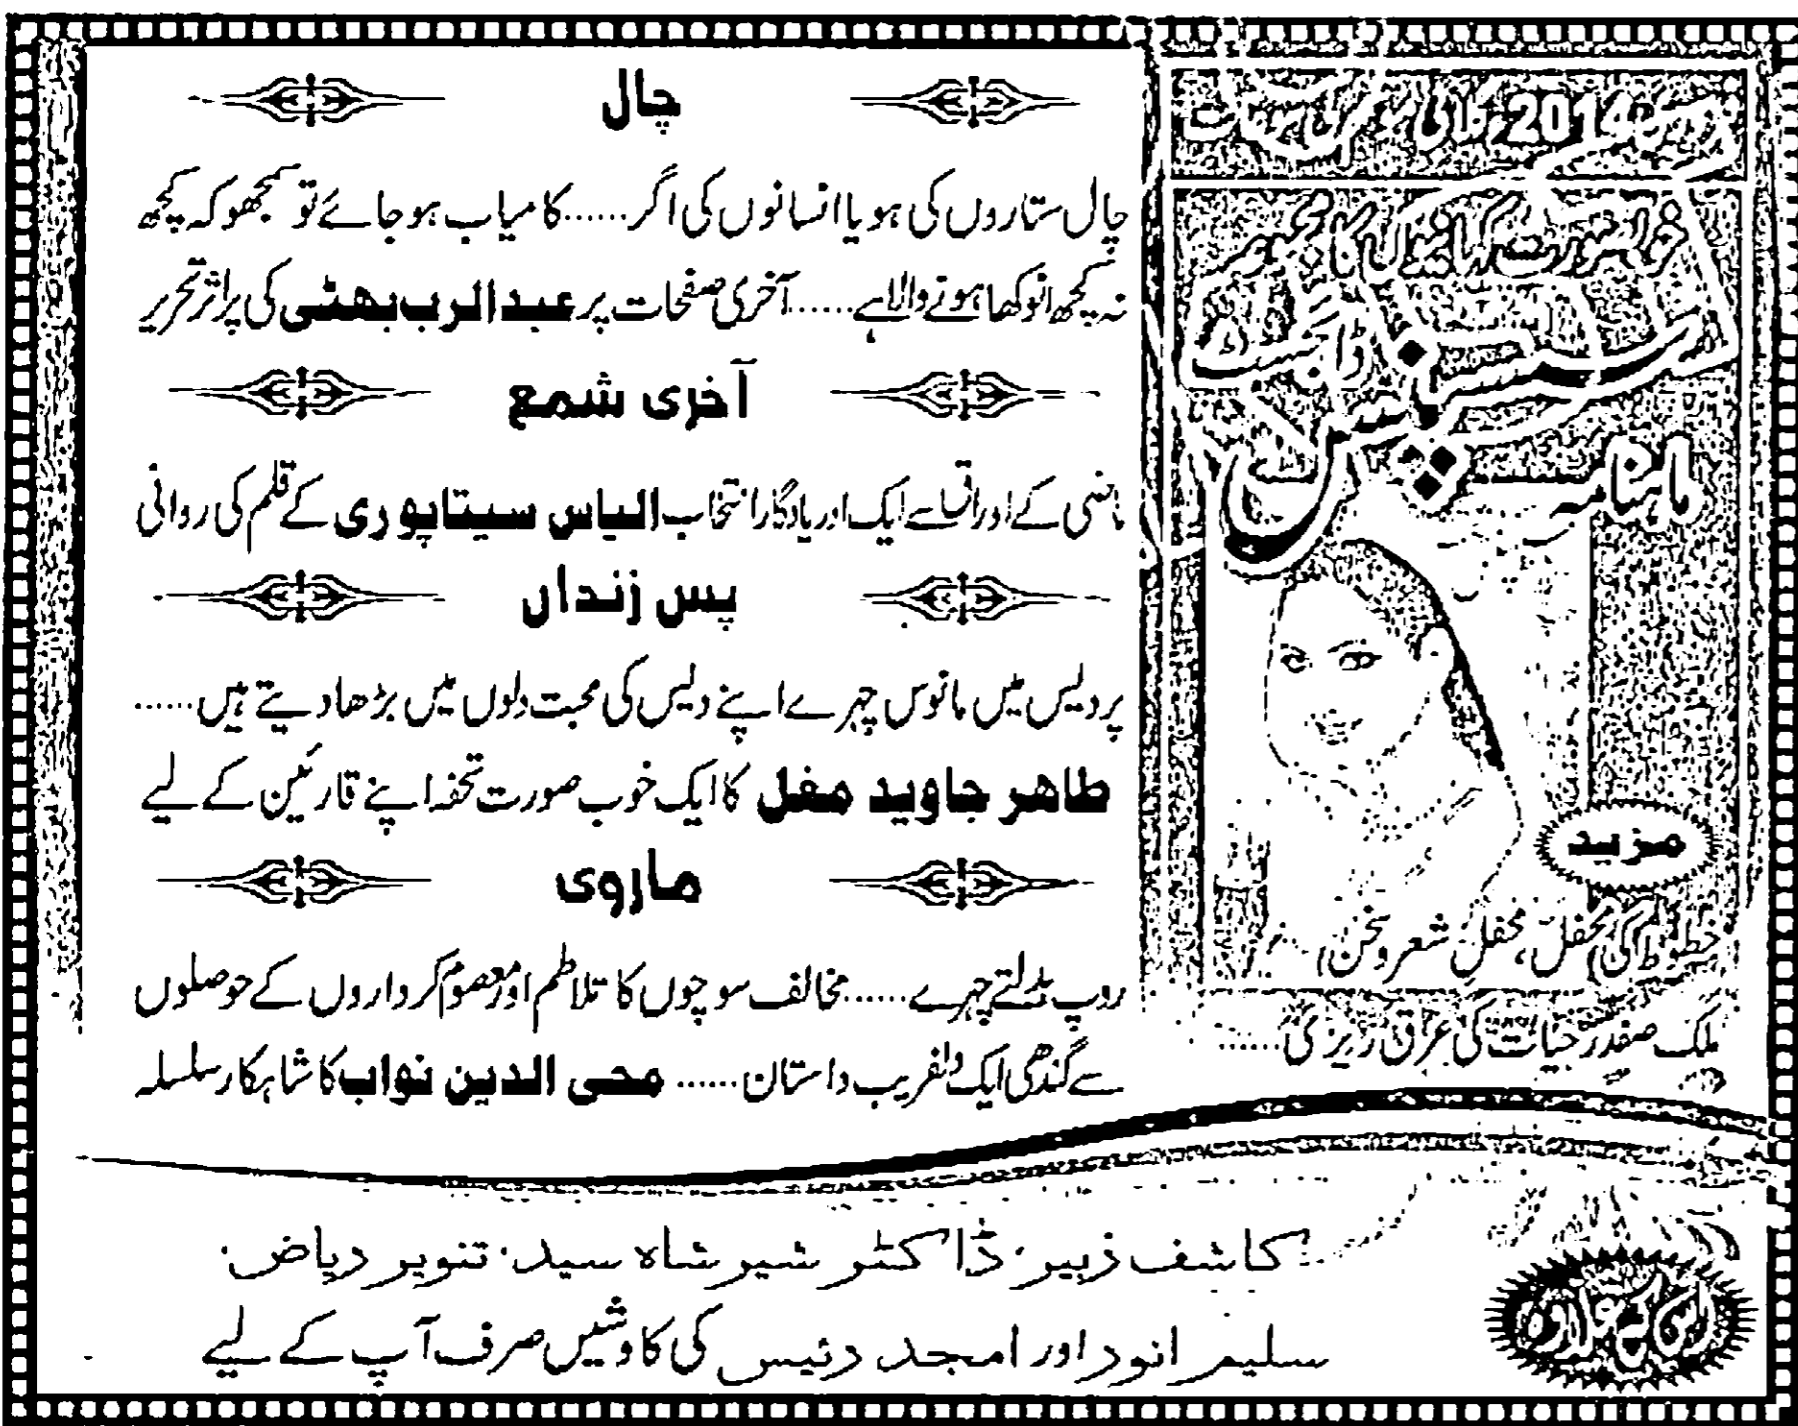 2014
خوبصورت کہانیوں کا مجموعہ
ڈائجسٹ
سسپنس
ماہنامہ
مزید
خطوط کی محفل، محفلِ شعر و سخن،
ملک صفدر حیات کی عرق ریزی......
چال
چال ستاروں کی ہو یا انسانوں کی اگر......کامیاب ہوجائے تو سمجھو کہ کچھ
نہ کچھ انوکھا ہونے والا ہے......آخری صفحات پر عبدالرب بھٹی کی پراثر تحریر
آخری شمع
ماضی کے اوراق سے ایک اور یادگار انتخاب الیاس سیتاپوری کے قلم کی روانی
پس زنداں
پردیس میں مانوس چہرے اپنے دیس کی محبت دلوں میں بڑھا دیتے ہیں......
طاہر جاوید مغل کا ایک خوب صورت تحفہ اپنے قارئین کے لیے
ماروی
روپ بدلتے چہرے......مخالف سوچوں کا تلاطم اور معصوم کرداروں کے حوصلوں
سے گندھی ایک دلفریب داستان...... محی الدین نواب کا شاہکار سلسلہ
اس کے علاوہ
کاشف زبیر، ڈاکٹر شیر شاہ سید، تنویر ریاض،
سلیم انور اور امجد رئیس کی کاوشیں صرف آپ کے لیے